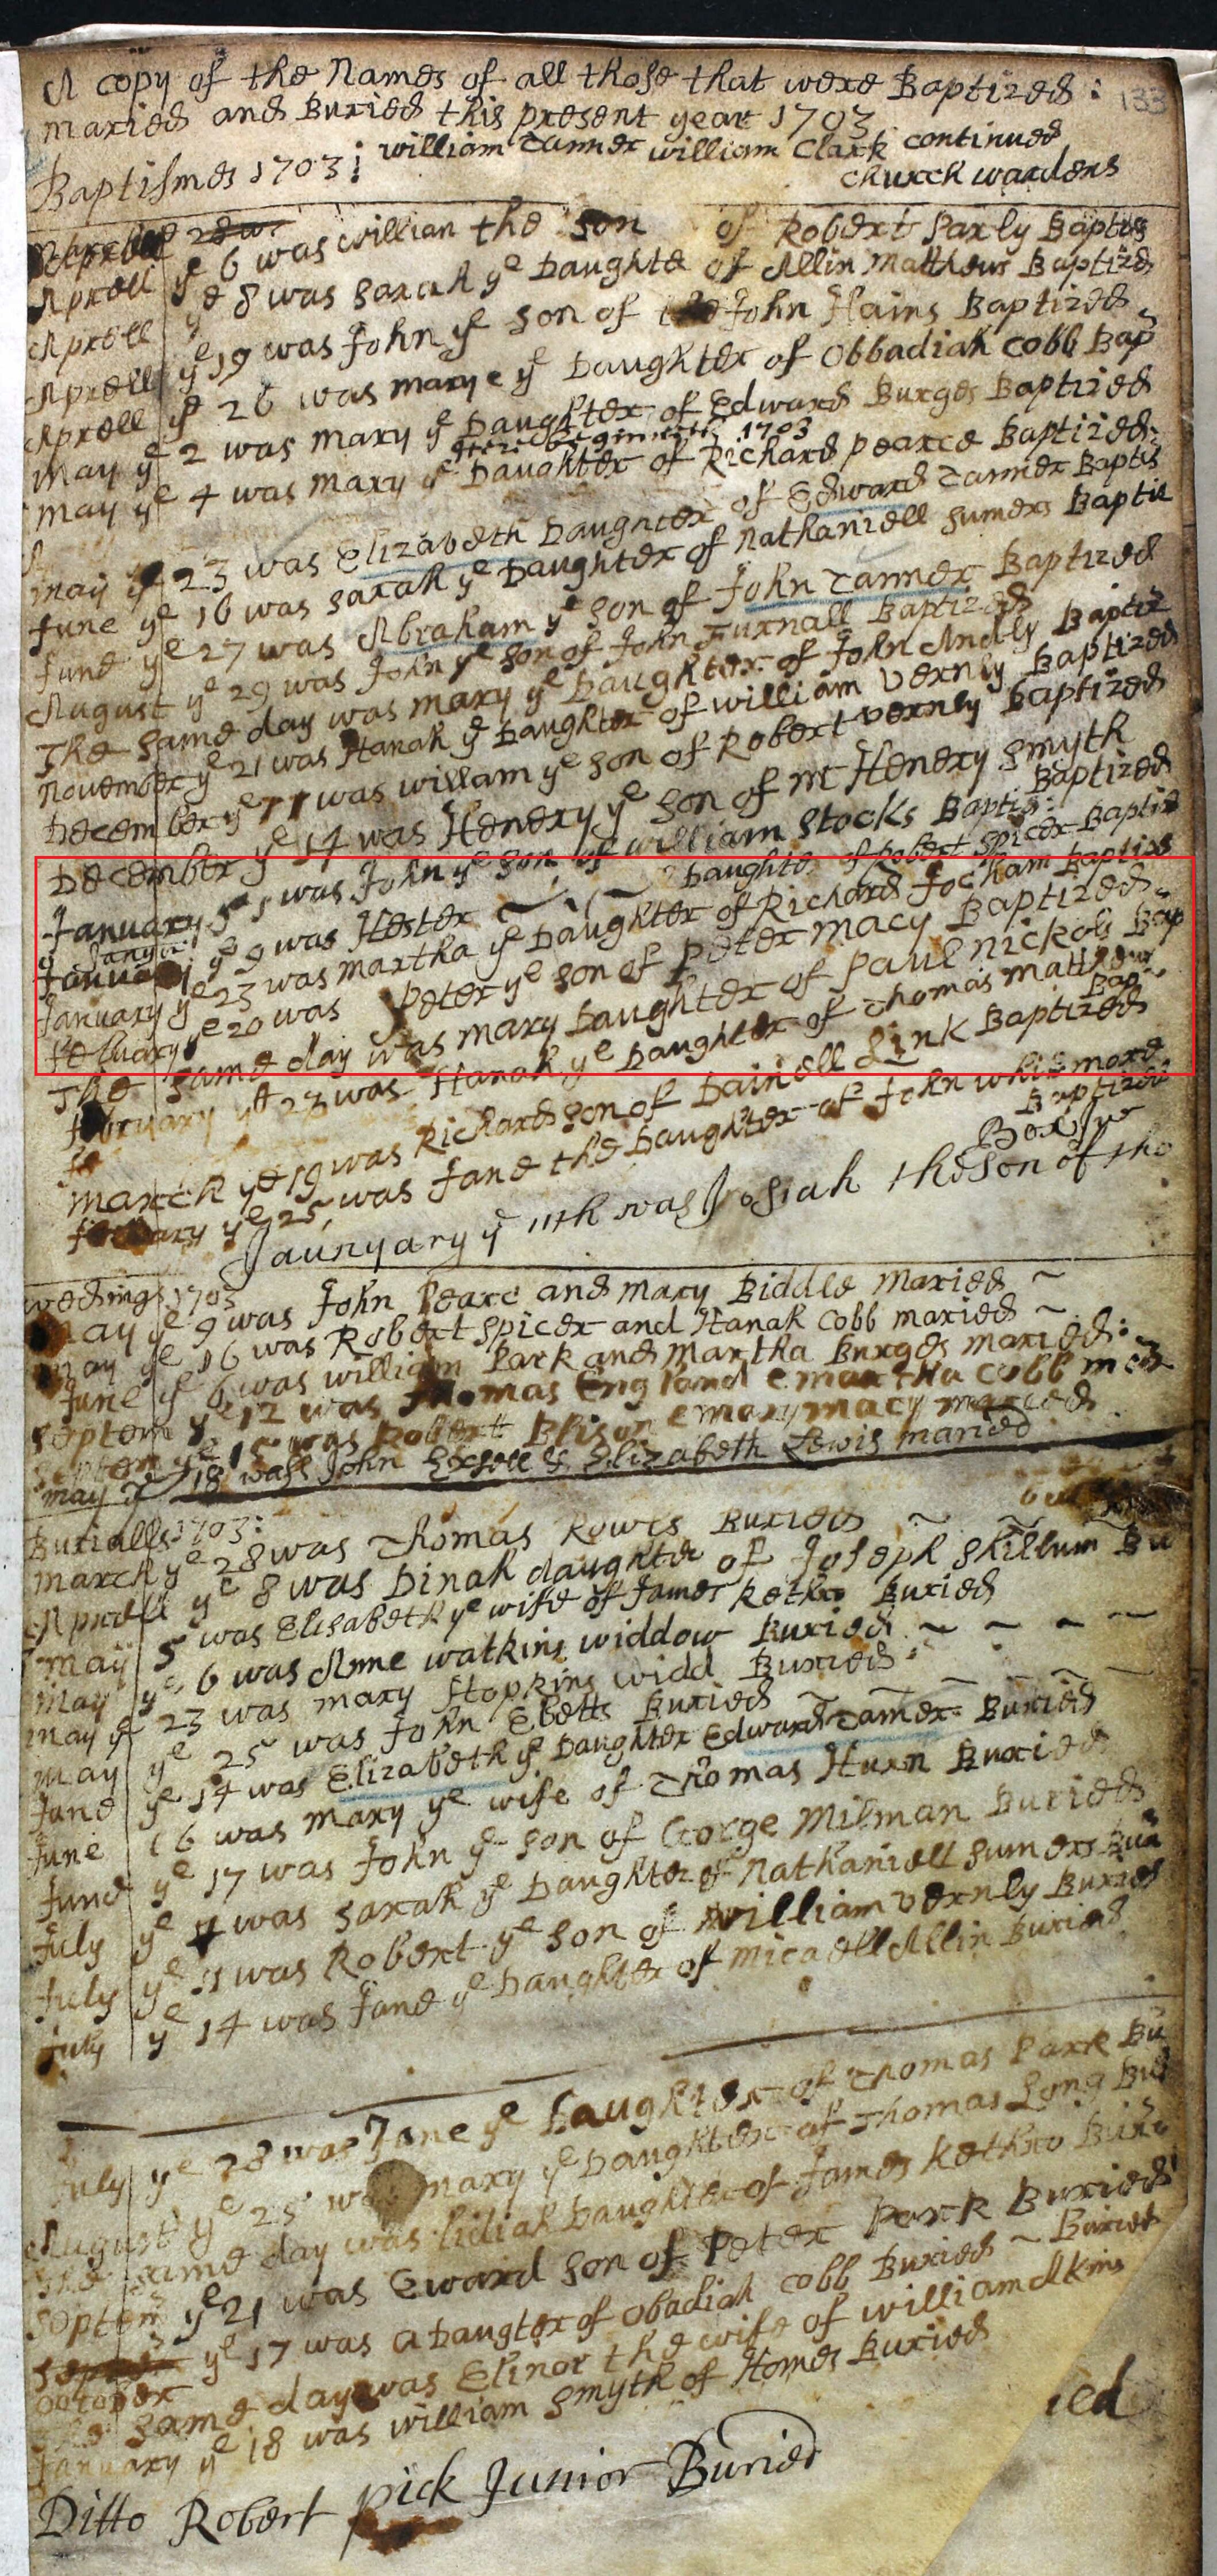 A copy of the Names of all those that were Baptized : 133
maried and Buried this present year 1703
william Tanner william Clark continued
Baptismes 1703 : church wardens
Aprell ye 6 was willian the son of Robert Parly Baptis
Aprell ye 8 was Sarah ye Daughte of Allin Mathews Baptized
Aprell ye 19 was John ye son of John Hains Baptized
Aprell ye 26 was mary e ye Daughter of Obbadiah Cobb Bap
may ye 2 was mary ye Daughter of Edward Burges Baptized
here beginneth 1703
may ye 4 was mary ye Daughter of Richard pearce Baptized
may ye 23 was Elizabeth Daughter of Edward Tanner Baptis
June ye 16 was sarah ye Daughter of Nathaniell sumers Baptiz
June ye 27 was Abraham ye son of John Tanner Baptized
August ye 29 was John ye son of John Furnall Baptized
The same day was mary ye Daughter of John Andly Baptiz
November ye 21 was Hanah ye Daughter of william Vernly Baptized
December ye 11 was willam ye son of Robert vernly Baptized
December ye 14 was Henery ye son of mr Henery Smyth
Baptized
January 5 was John ye son of william Stocks Baptis:
ye 9 was Hester Daughte of Robert spicer Baptiz
January ye 23 was martha ye Daughter of Richard Jocham Baptiz
febuary ye 20 was Peter ye son of peter macy Baptized
The same day was mary Daughter of Paul Nickols Bap
february ye 23 was Hanah ye Daughter of Thomas matthew
Bap
march ye 19 was Richard son of Dainell Link Baptized
ye 25 was Jane the Daughter of John whitmore
Baptized
Jaunyary ye 11th was Josiah the son of tho
wedings 1703
may ye 9 was John Pearc and mary Biddle maried
may ye 16 was Robert spicer and Hanah Cobb maried
June ye 6 was william Park and martha Burges maried:
septem ye 12 was Thomas England e martha Cobb mar
septem ye 15 was Robert Elison e mary macy maried
may ye 18 was John Exsell & Elizabeth Lewis maried
Burialls 1703:
march ye 28 was Thomas Rowes Buried
Aprell ye 8 was Dinah daughte of Joseph skillum Bu
may 5 was Elisabeth ye wife of James kethro Buried
may ye 6 was Anne watkins widdow Buried
may ye 23 was mary Hopkins widd Buried
may ye 25 was John Ebetts Buried
June ye 14 was Elizabeth ye Daughter Edward Tanner Buried
June 16 was mary ye wife of Thomas Hurn Buried
June ye 17 was John ye son of George Milman Buried
July ye 4 was sarah ye Daughter of Nathaniell sumers Bur
July ye 11 was Robert ye son of william vernly Buried
July ye 14 was Jane ye Daughter of micaell Allin Buried
July ye 28 was Jane ye Daughter of Thomas Park Bu
August ye 25 was mary ye Daughter of Thomas Long Bu
The same day was lidiah Daughter of James kethro Buri
septem ye 21 was Eward son of Peter Park Buried
October ye 17 was a Daugter of obadiah Cobb Buried
The same day was Elinor the wife of william Akins Buried
January ye 18 was william smyth of Homes Buried
ied
Ditto Robert pick Junior Buried